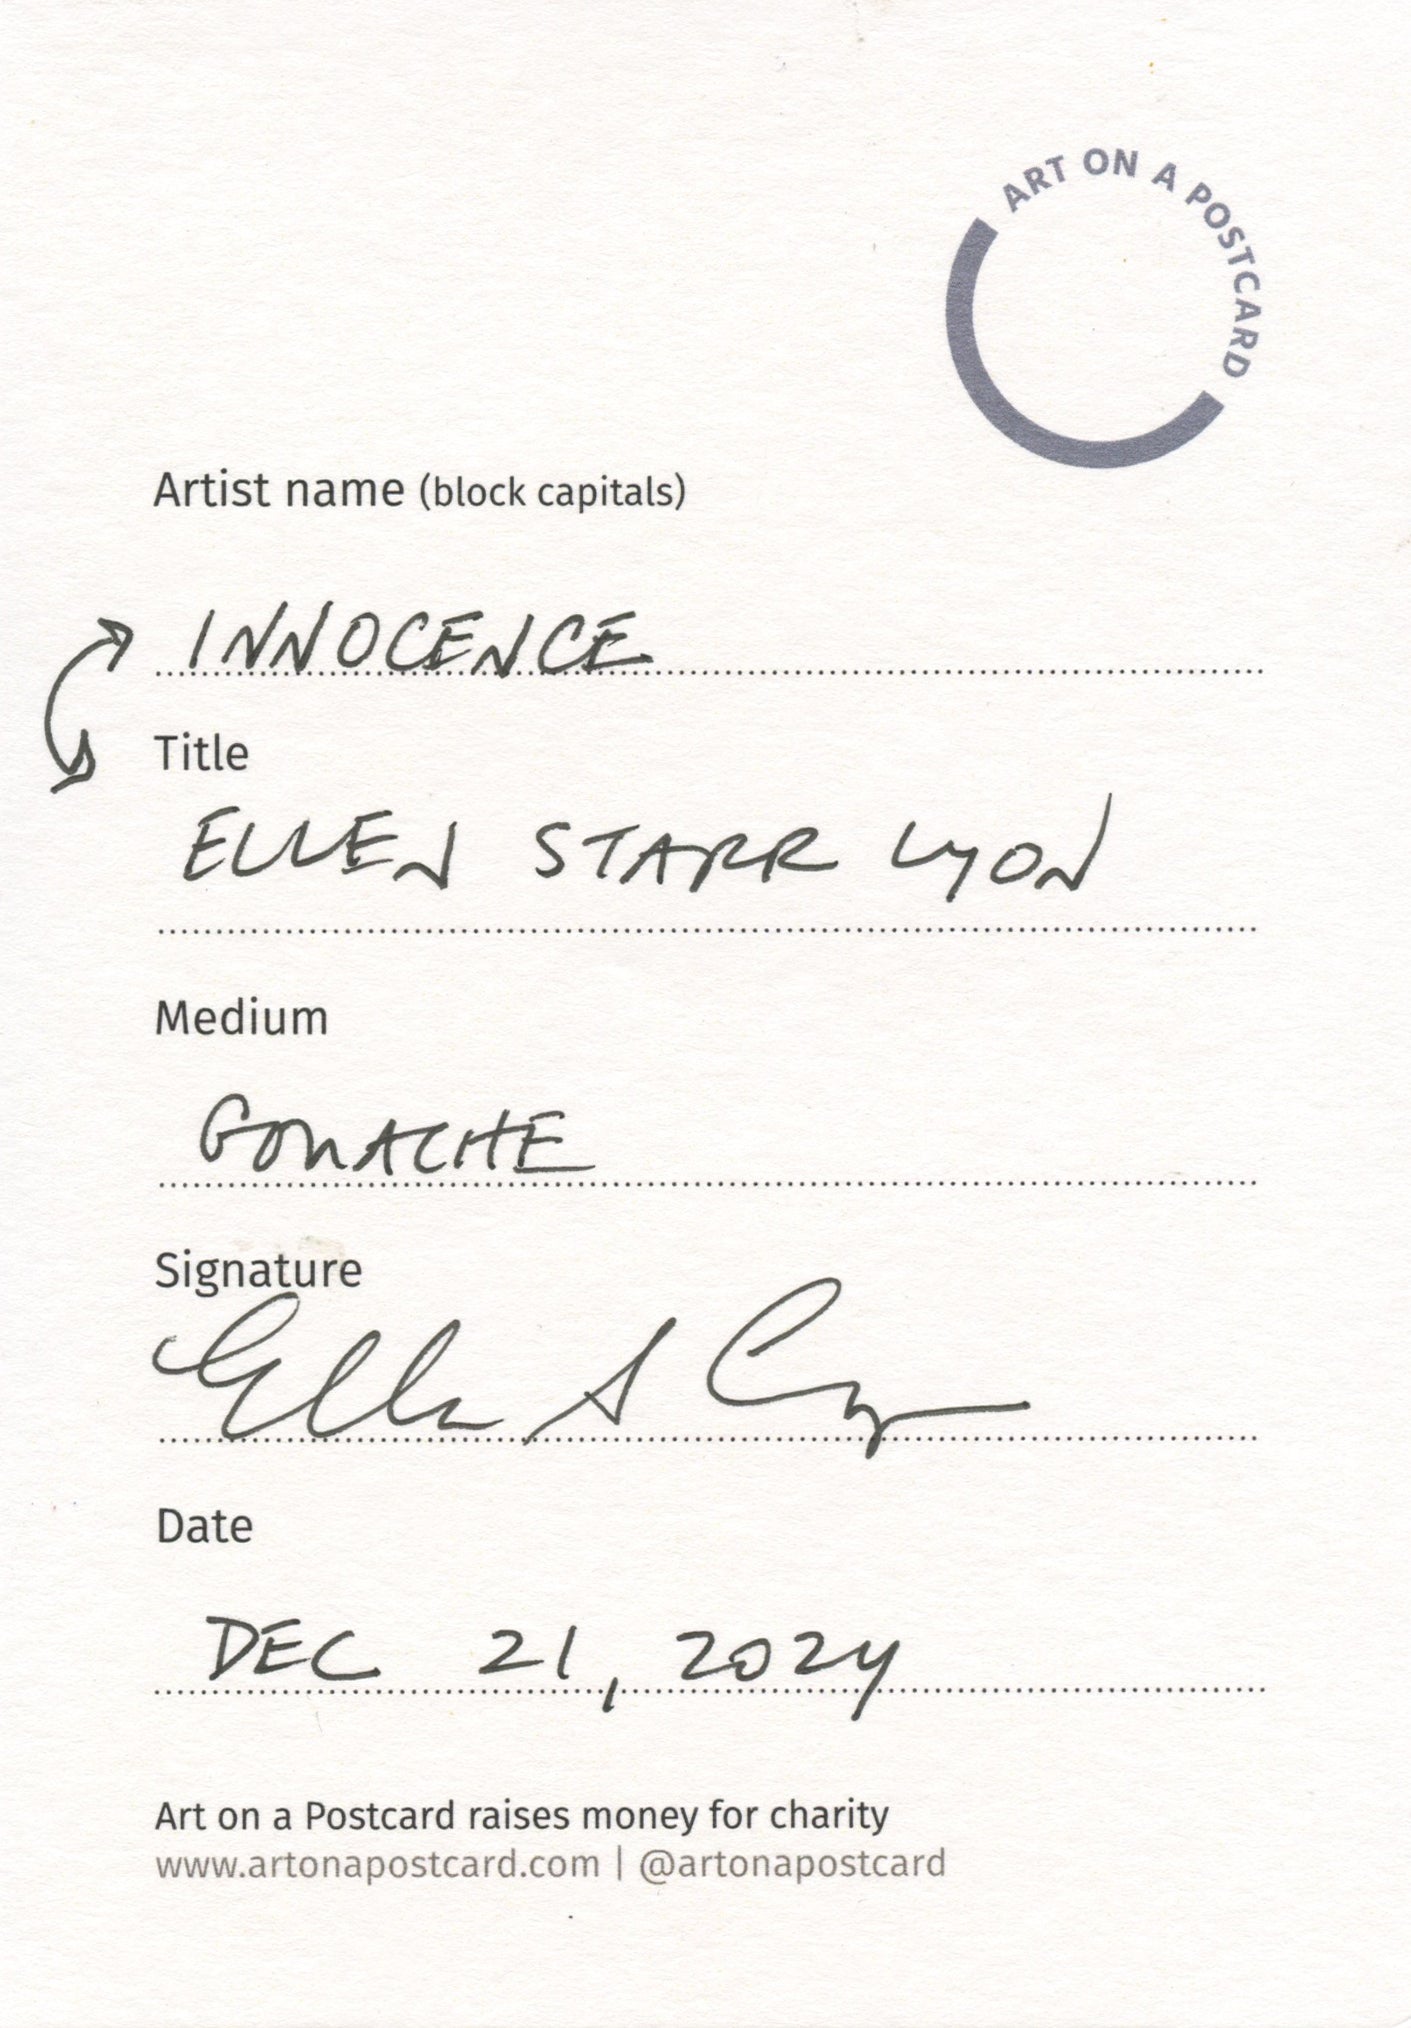 ART ON A POSTCARD
Artist name (block capitals)
INNOCENCE
Title
ELLEN STARR LYON
Medium
GOUACHE
Signature
Date
DEC 21, 2024
Art on a Postcard raises money for charity
www.artonapostcard.com | @artonapostcard